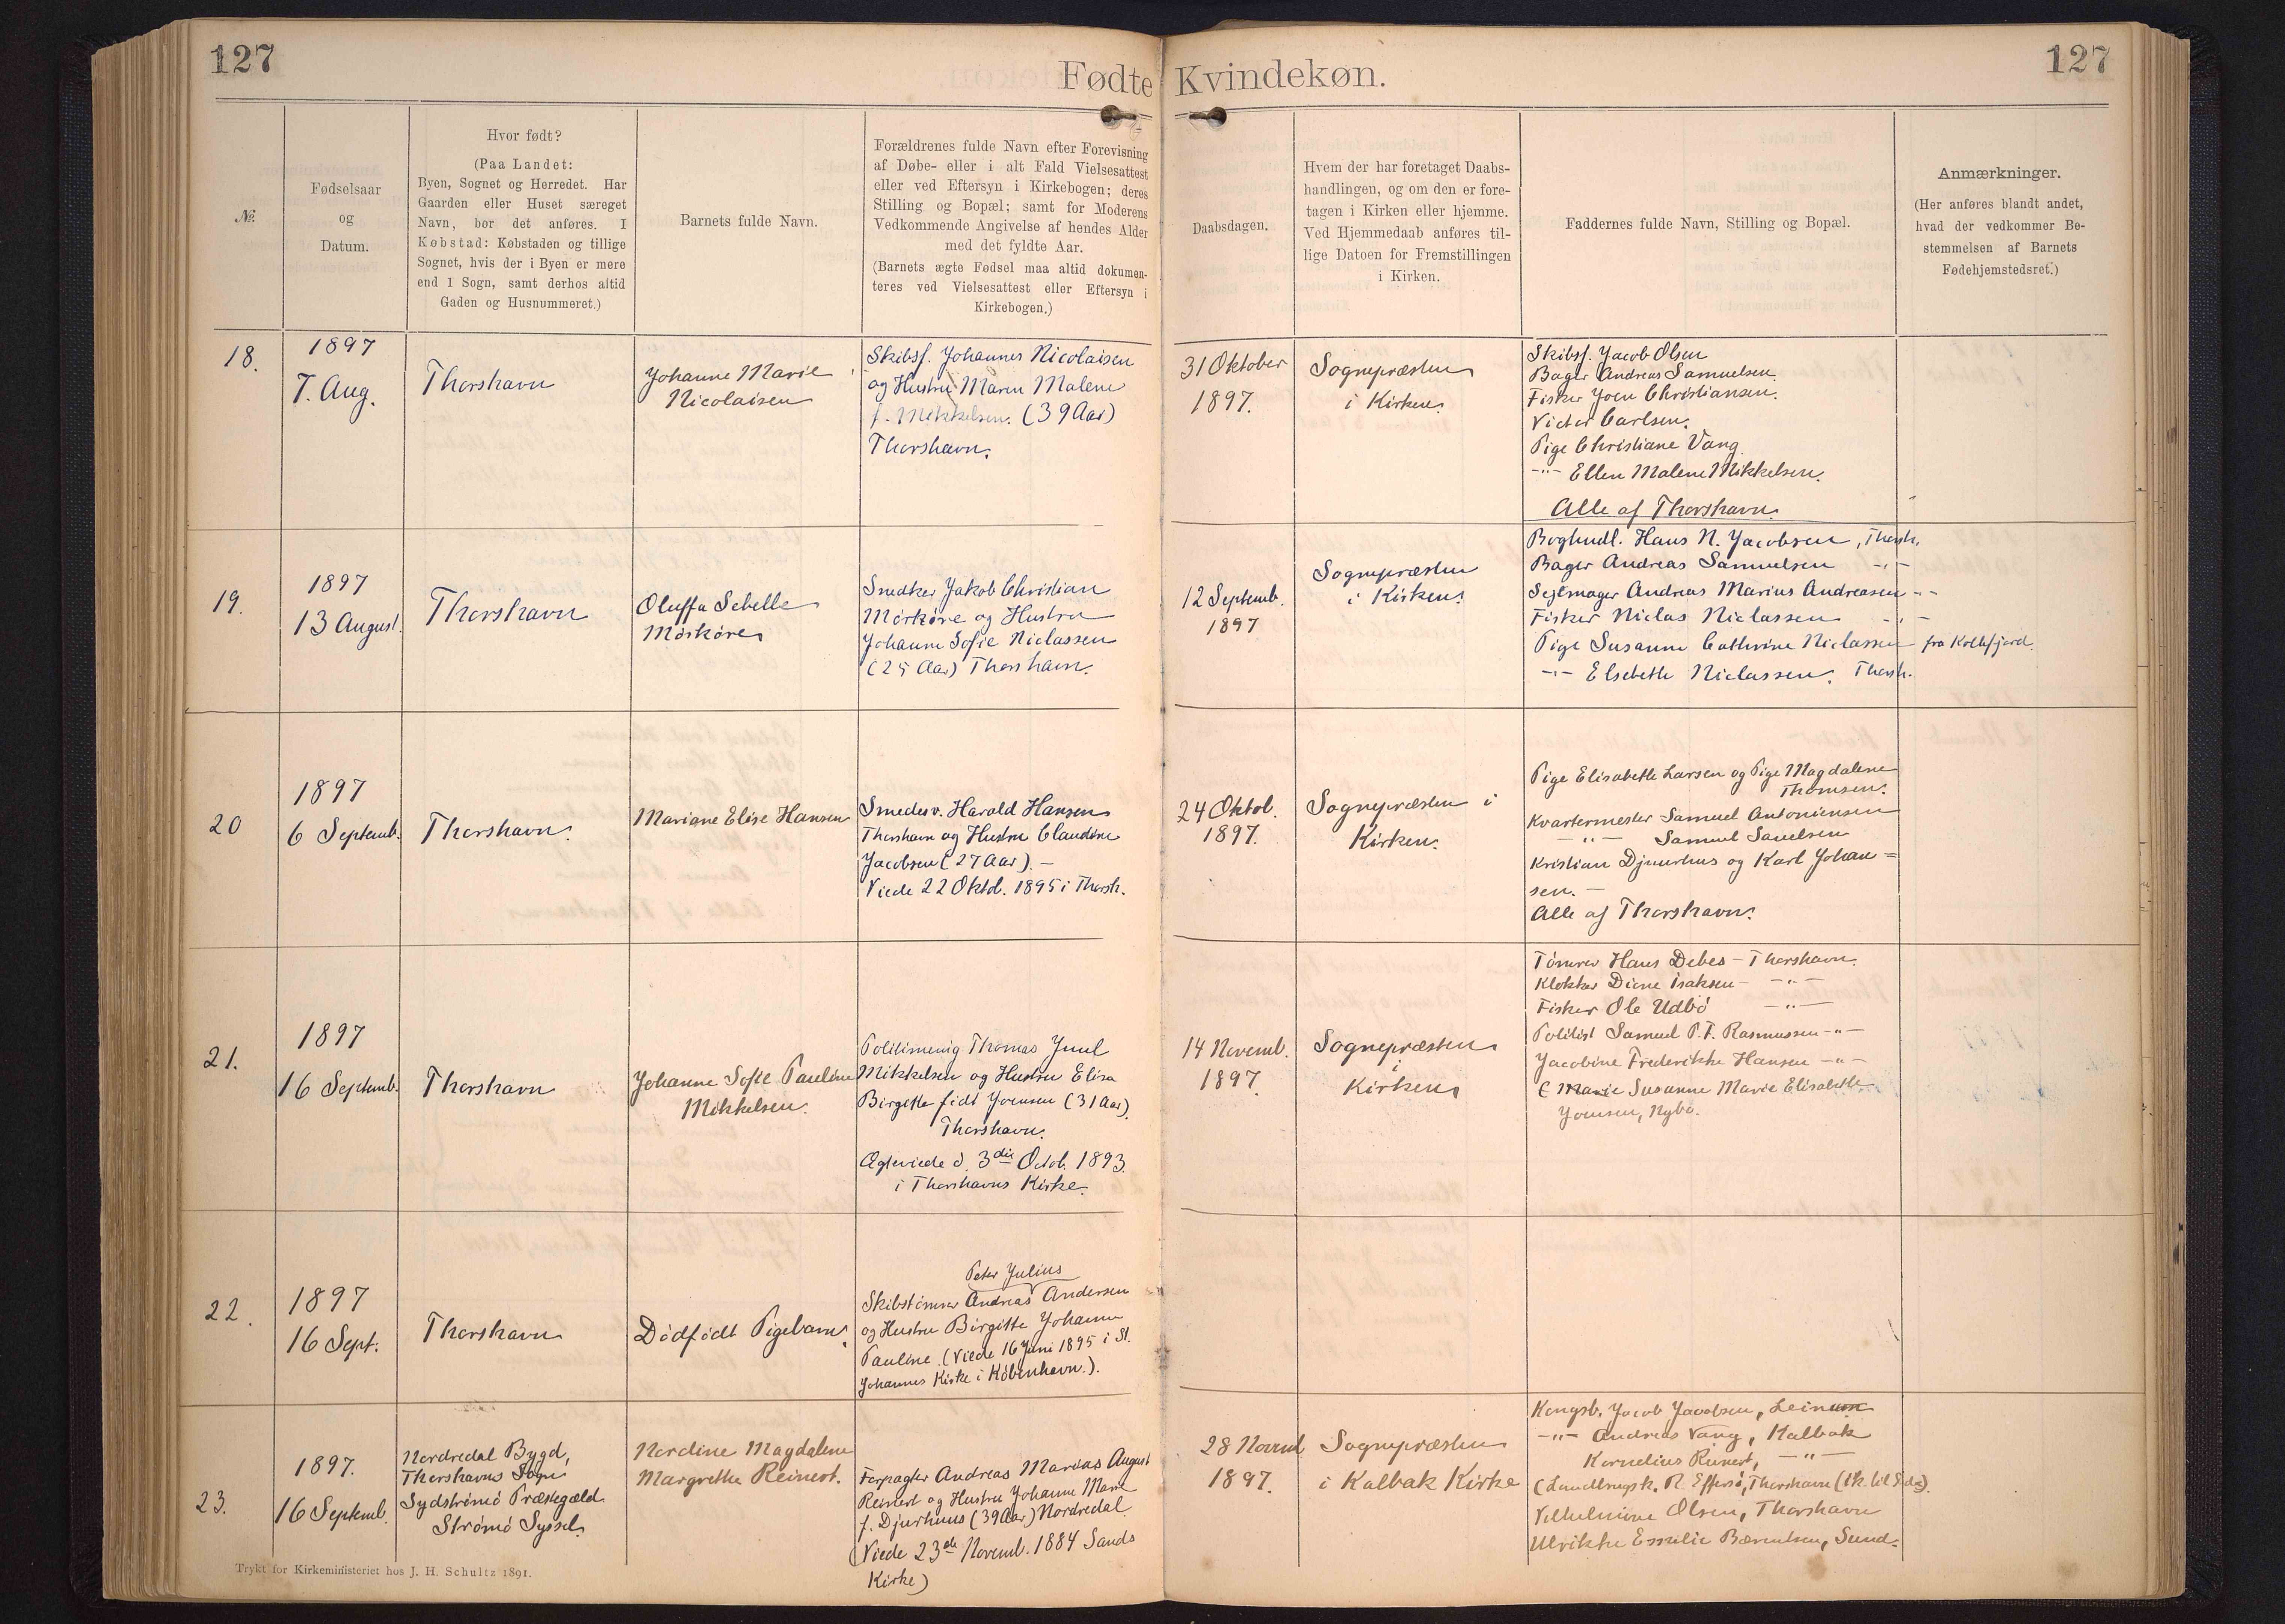 127
Fødte Kvindekøn.
127
№.
Fødselsaar
og
Datum.
Hvor født?
(Paa Landet:
Byen, Sognet og Herredet. Har
Gaarden eller Huset særeget
Navn, bør det anføres. I
Købstad: Købstaden og tillige
Sognet, hvis der i Byen er mere
end 1 Sogn, samt derhos altid
Gaden og Husnummeret.)
Barnets fulde Navn.
Forældrenes fulde Navn efter Forevisning
af Døbe- eller i alt Fald Vielsesattest
eller ved Eftersyn i Kirkebogen; deres
Stilling og Bopæl; samt for Moderens
Vedkommende Angivelse af hendes Alder
med det fyldte Aar.
(Barnets ægte Fødsel maa altid dokumen-
teres ved Vielsesattest eller Eftersyn i
Kirkebogen.)
Daabsdagen.
Hvem der har foretaget Daabs-
handlingen, og om den er fore-
tagen i Kirken eller hjemme.
Ved Hjemmedaab anføres til-
lige Datoen for Fremstillingen
i Kirken.
Faddernes fulde Navn, Stilling og Bopæl.
Anmærkninger.
(Her anføres blandt andet,
hvad der vedkommer Be-
stemmelsen af Barnets
Fødehjemstedsret.)
18.
1897
7. Aug.
Thorshavn
Johanne Marie
Nicolaisen
Skibsf. Johannes Nicolaisen
og Hustru Maren Malene
f. Mikkelsen. (39 Aar)
Thorshavn.
31 Oktober
1897.
Sognepræsten
i Kirken.
Skibsf. Jacob Olsen
Bager Andreas Samuelsen.
Fisker Joen Christiansen.
Victor Carlsen.
Pige Christiane Vang
-"- Ellen Malene Mikkelsen.
Alle af Thorshavn.
19.
1897
13 August.
Thorshavn
Oluffa Sebelle
Mörköre
Snedker Jakob Christian
Mörköre og Hustru
Johanne Sofie Niclassen
(25 Aar) Thorshavn.
12 Septemb.
1897
Sognepræsten
i Kirken.
Boghndl. Hans N. Jacobsen, Thorsh.
Bager Andreas Samuelsen -"-
Sejlmager Andreas Marius Andreasen -"-
Fisker Niclas Niclassen -"-
Pige Susanne Cathrine Niclassen fra Kollefjord.
-"- Elsebeth Niclassen. Thorsh.
20
1897
6 Septemb.
Thorshavn.
Mariane Elise Hansen
Smedesv. Harald Hansen
Thorshavn og Hustru Claudine
Jacobsen (27 Aar). -
Viede 22 Oktob. 1895 i Thorsh.
24 Oktob.
1897.
Sognepræsten i
Kirken.
Pige Elisabeth Larsen og Pige Magdalene
Thomsen.
Kvartermester Samuel Antoniensen
-"- Samuel Sauelsen
Kristian Djuurhus og Karl Johan=
sen. -
Alle af Thorshavn.
21.
1897
16 Septemb.
Thorshavn
Johanne Sofie Pauline
Mikkelsen.
Politimenig Thomas Juul
Mikkelsen og Hustru Elisa
Birgitte födt Joensen (31 Aar).
Thorshavn.
Ægteviede d. 3die Octob. 1893.
i Thorshavns Kirke.
14 Novemb.
1897.
Sognepræsten
i
Kirken
Tömrer Hans Debes - Thorshavn.
Klokker Diene Isaksen -"-
Fisker Ole Udbö -"-
Politist Samuel P. F. Rasmussen -"-
Jacobine Frederikke Hansen -"-
( Marie Susanne Marie Elisabeth
Joensen, Nybö.
22.
1897
16 Sept.
Thorshavn
Dödfödt Pigebarn.
Peter Julius
Skibstömrer Andreas Andersen
og Hustru Birgitte Johanne
Pauline (Viede 16 Juni 1895 i St.
Johannes Kirke i Köbenhavn.).
23.
1897.
16 Septemb.
Nordredal Bygd,
Thorshavns Sogn
Sydströmö Præstegæld
Strömö Syssel.
Nordine Magdalene
Margrethe Reinert.
Forpagter Andreas Marius August
Reinert og Hustru Johanne Marie
f. Djurhuus (39 Aar) Nordredal.
(Viede 23de Novemb. 1884 Sands
Kirke)
28 Novemb
1897.
Sognepræsten
i Kalbak Kirke
Kongsb. Jacob Jacobsen, Leinum
-"- Andreas Vang, Kalbak
Kornelius Reinert, -"-
(Landbrugsk. R. Effersö, Thorshavn
Vilhelmine Olsen, Thorshavn
Ulrikke Emilie Bærentsen, Sund.
Trykt for Kirkeministeriet hos J. H. Schultz 1891.